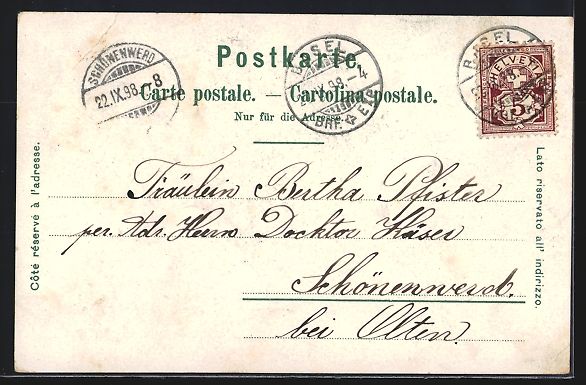 Postkarte.
Carte postale. — Cartolina postale.
Nur für die Adresse.
SCHÖNENWERD
22.IX.98.-8
BASEL
IX.98.-4
BRF.
BASEL
HELVETIA
Côté réservé à l'adresse.
Lato riservato all' indirizzo.
Fräulein Bertha Pfister
per. Adr. Herrn Docktor Häser
Schönenwerd.
bei Olten.